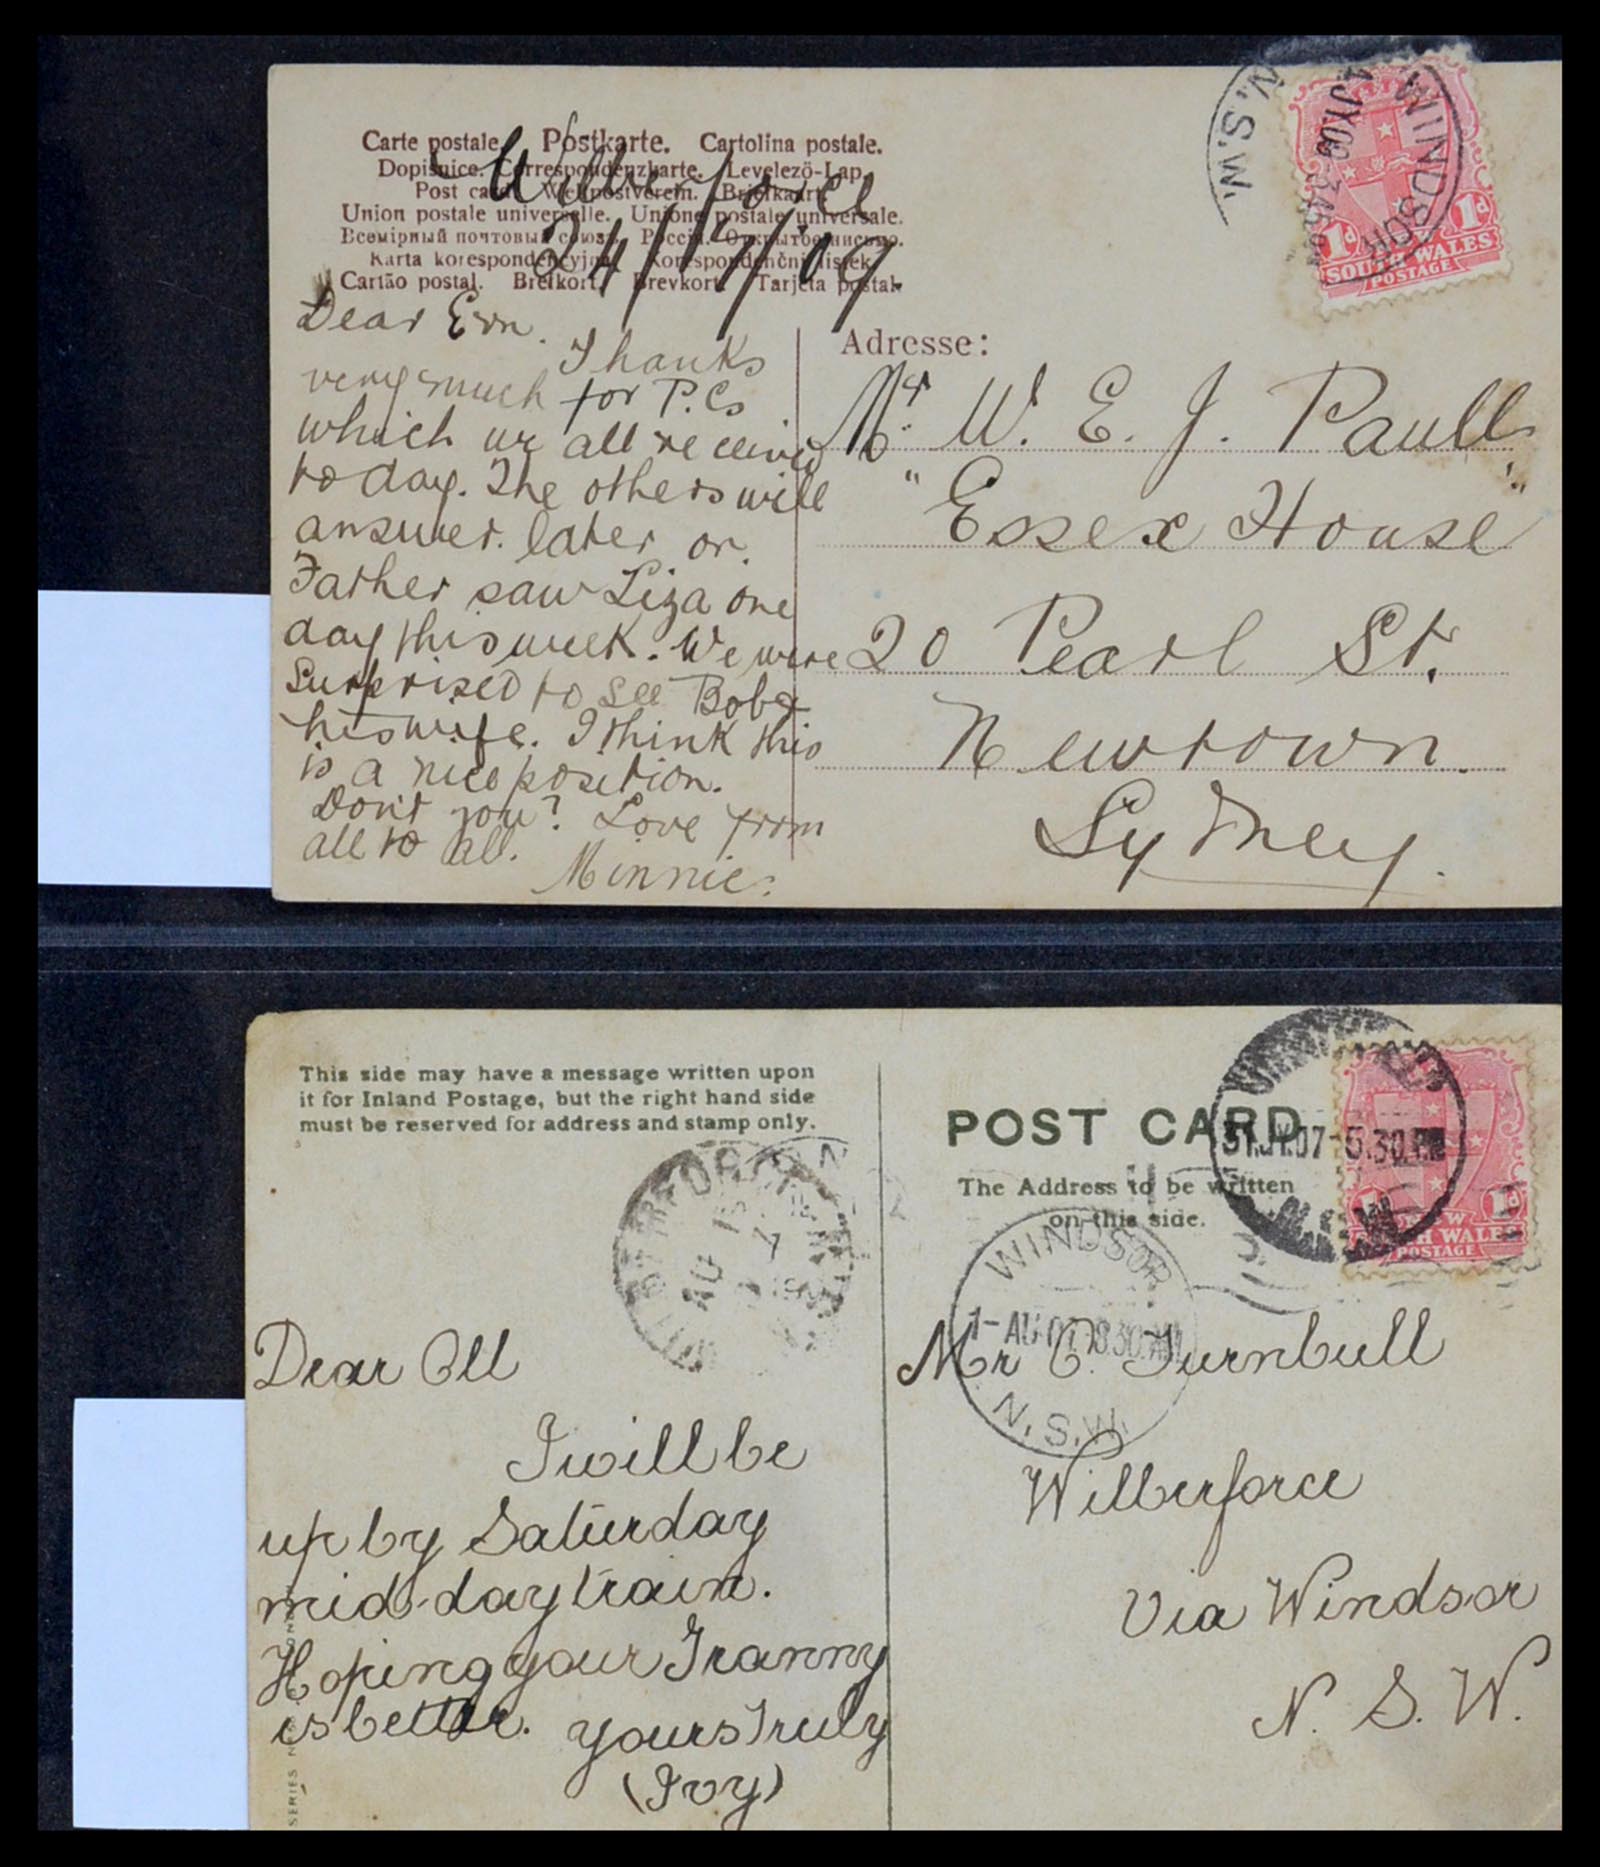 Carte postale. Postkarte. Cartolina postale.
Dopisnice. Correspondenzkarte. Levelező-Lap.
Post card. Weltpostverein. Briefkaart.
Union postale universelle. Unione postale universale.
Всемірный почтовый союзъ. Россія. Открытое письмо.
Karta korespondencyjna. Korespondenční lístek.
Cartão postal. Brefkort. Brevkort. Tarjeta postal.
Wilberforce
24/7/09
Dear Ern.
Thanks
very much for P.Cs
which we all received
today. The others will
answer later on.
Father saw Liza one
day this week. We were
surprised to see Bob &
his wife. I think this
is a nice position.
Don't you? Love from
all to all.
Minnie.
WINDSOR
JY.09
N.S.W.
1d 1d
SOUTH WALES
POSTAGE
Adresse:
Mr. W. E. J. Paull
"Essex House"
20 Pearl St.
Newtown
Sydney.
This side may have a message written upon
it for Inland Postage, but the right hand side
must be reserved for address and stamp only.
POST CARD
The Address to be written
on this side.
31.JY.07-5.30.P.M
1d
SOUTH WALES
POSTAGE
AU 1
7
WINDSOR
1-AU.07.8.30.AM
N.S.W.
Dear Oll
I will be
up by Saturday
mid-day train.
Hoping your Granny
is better. yours Truly
(Ivy)
Mr O. Turnbull
Wilberforce
Via Windsor
N. S. W.
SERIES N